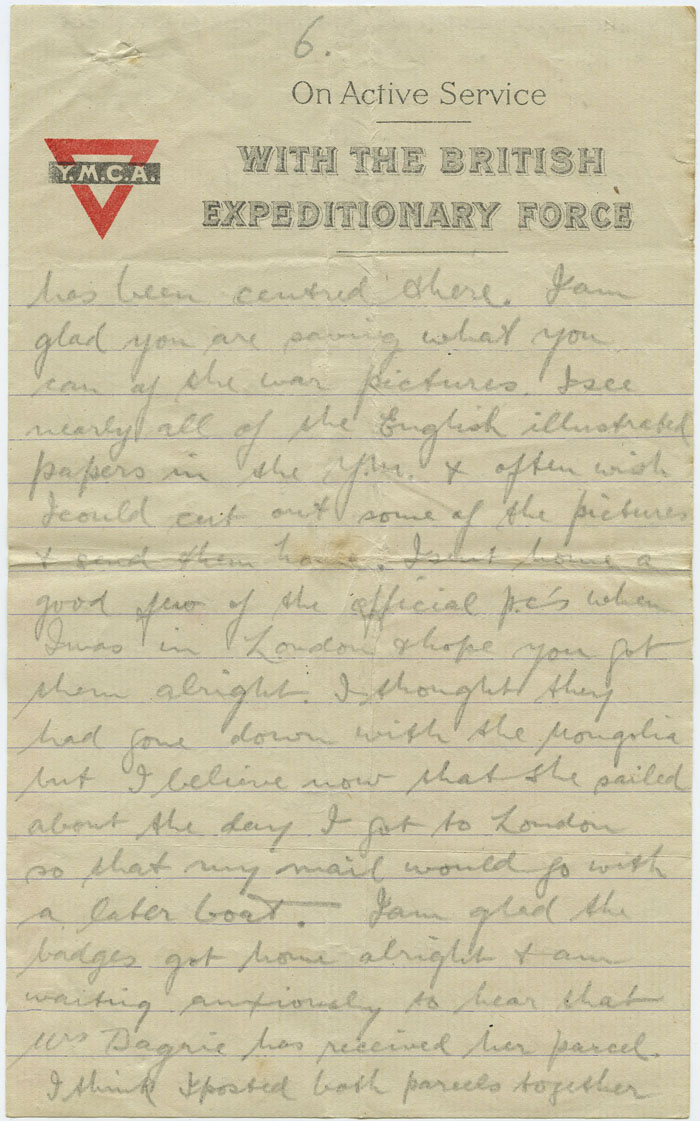 6.
On Active Service
WITH THE BRITISH
Y.M.C.A.
EXPEDITIONARY FORCE
has been centred there. I am
glad you are saving what you
can of the war pictures. I see
nearly all of the English illustrated
papers in the Y.M. & often wish
I could cut out some of the pictures
& send them home. I sent home a
good few of the official p.c's when
I was in London & hope you got
them alright. I thought they
had gone down with the Mongolia
but I believe now that she sailed
about the day I got to London
so that my mail would go with
a later boat. — I am glad the
badges got home alright & am
waiting anxiously to hear that
Mrs has received her parcel.
I think I posted both parcels together